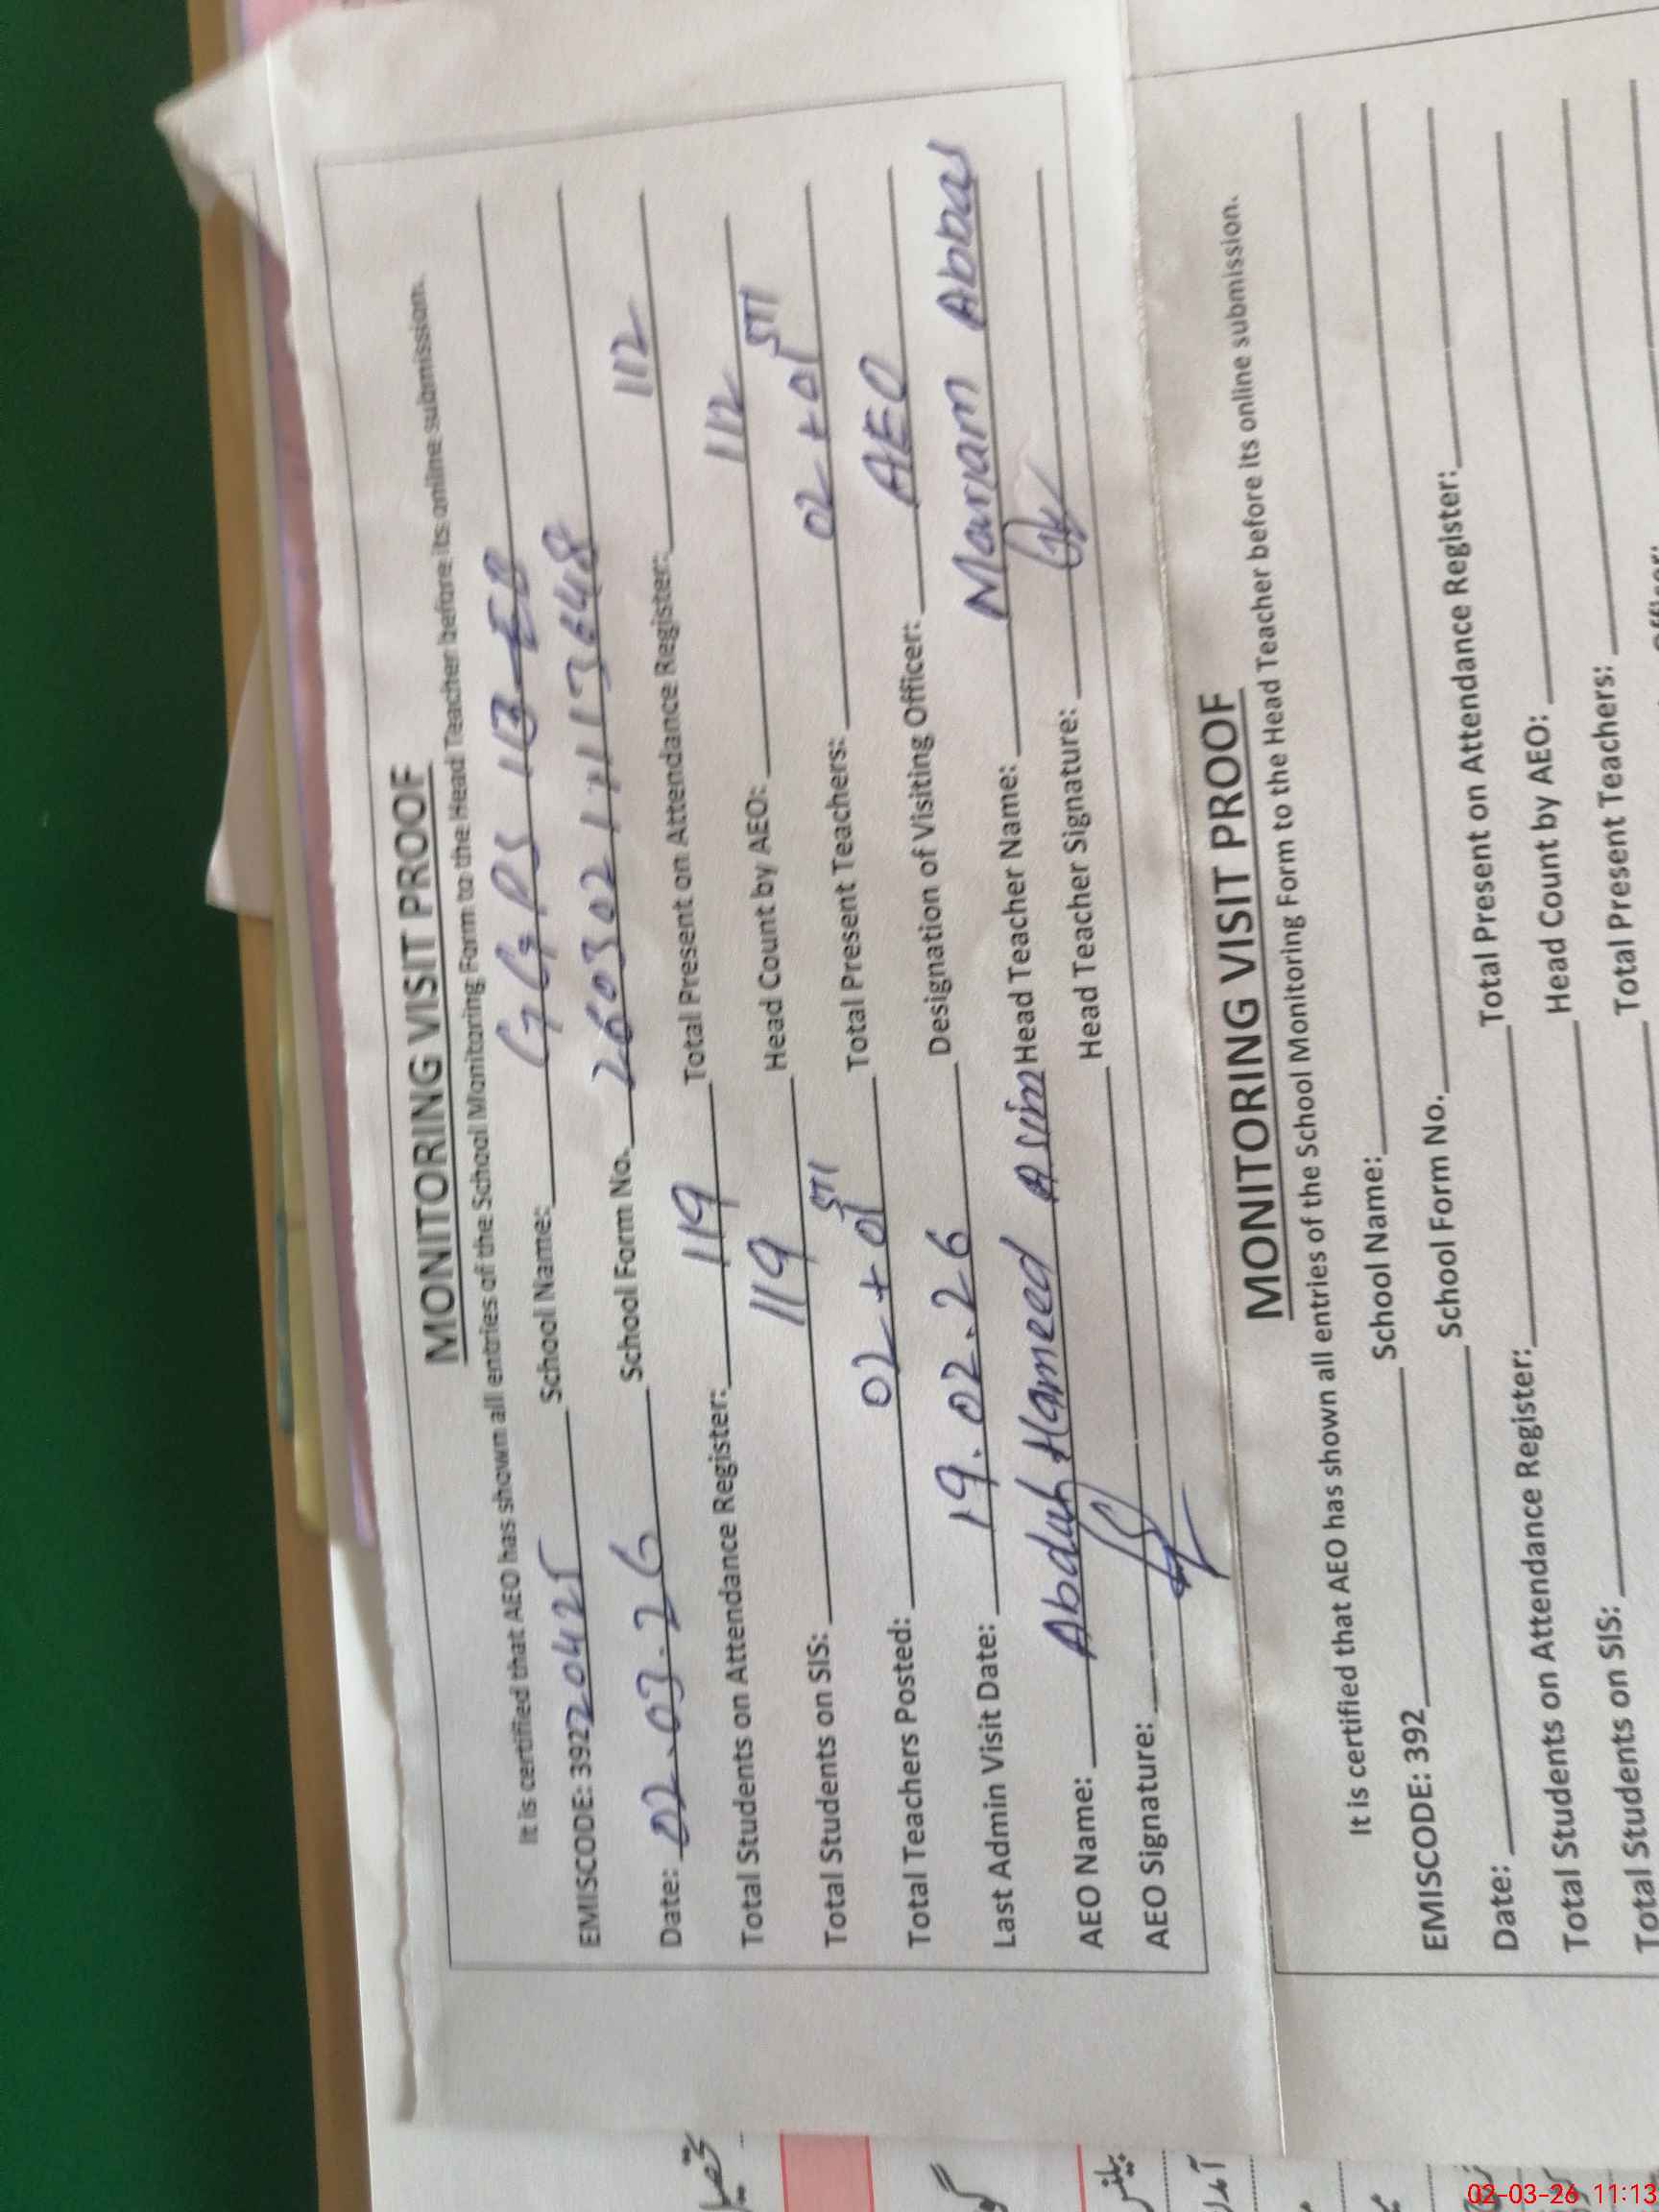 MONITORING VISIT PROOF
It is certified that AEO has shown all entries of the School Monitoring Form to the Head Teacher before its online submission.
EMISCODE: 39220425 School Name: GGPS 113-EB
Date: 02.03.26 School Form No. 260302
Total Students on Attendance Register: 119 Total Present on Attendance Register: 112
Total Students on SIS: 119 Head Count by AEO: 112
Total Teachers Posted: 02 + 01 STI Total Present Teachers: 02 + 01 STI
Last Admin Visit Date: 19.02.26 Designation of Visiting Officer: AEO
AEO Name: Abdul Hameed Asim Head Teacher Name: Maryam Abbas
AEO Signature: Head Teacher Signature:
MONITORING VISIT PROOF
It is certified that AEO has shown all entries of the School Monitoring Form to the Head Teacher before its online submission.
EMISCODE: 392 School Name:
Date: School Form No.
Total Students on Attendance Register: Total Present on Attendance Register:
Total Students on SIS: Head Count by AEO:
Total Present Teachers:
02-03-26 11:13